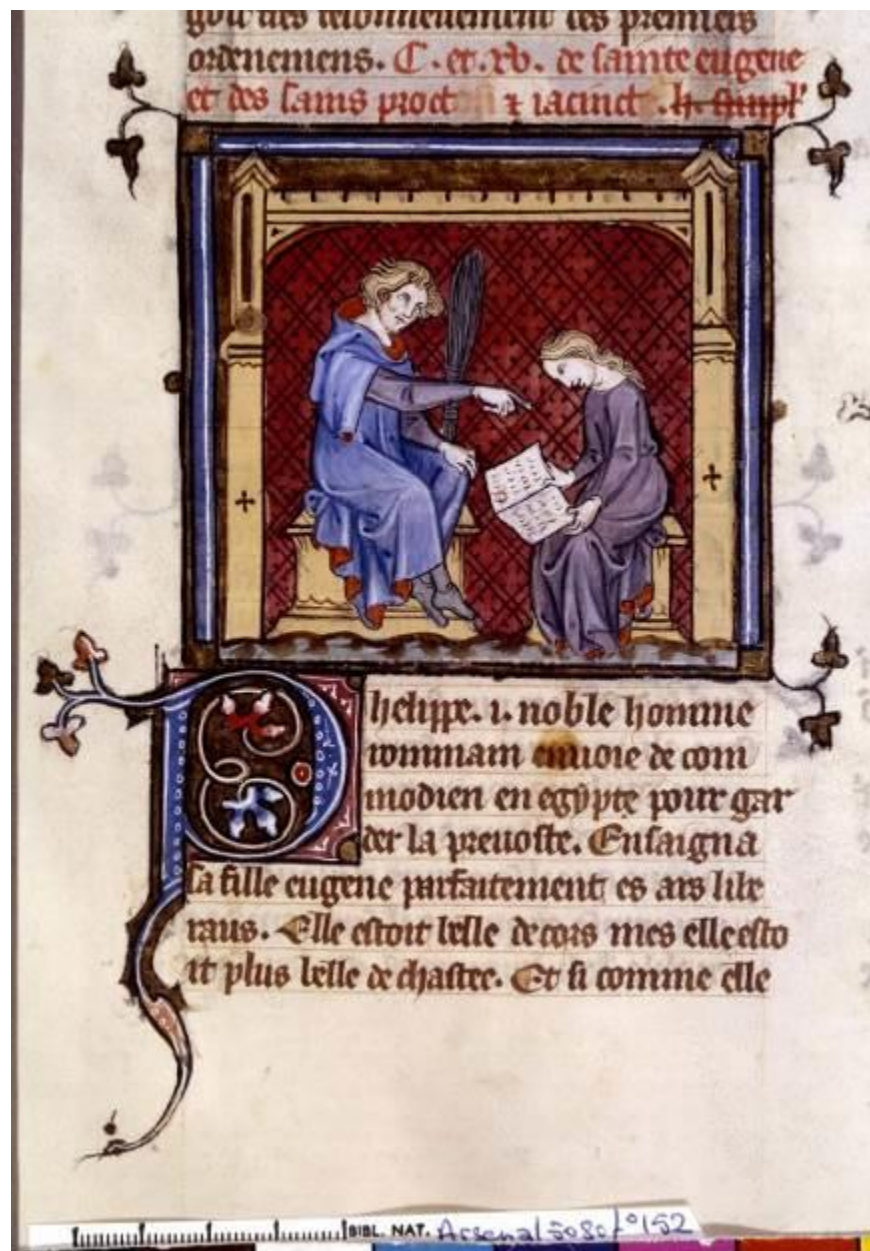 goit des
ordenemens. C. et. xv. de sainte eugene
et des sains proct z iacinct
Phelippe. i. noble homme
rommam enuoie de com
modien en egypte pour gar
der la preuoste. Ensaigna
sa fille eugene parfaitement es ars libe
raus. Elle estoit belle de cors mes elle esto
it plus belle de chastee. Et si comme elle
BIBL. NAT. Arsenal 5080 fo 152